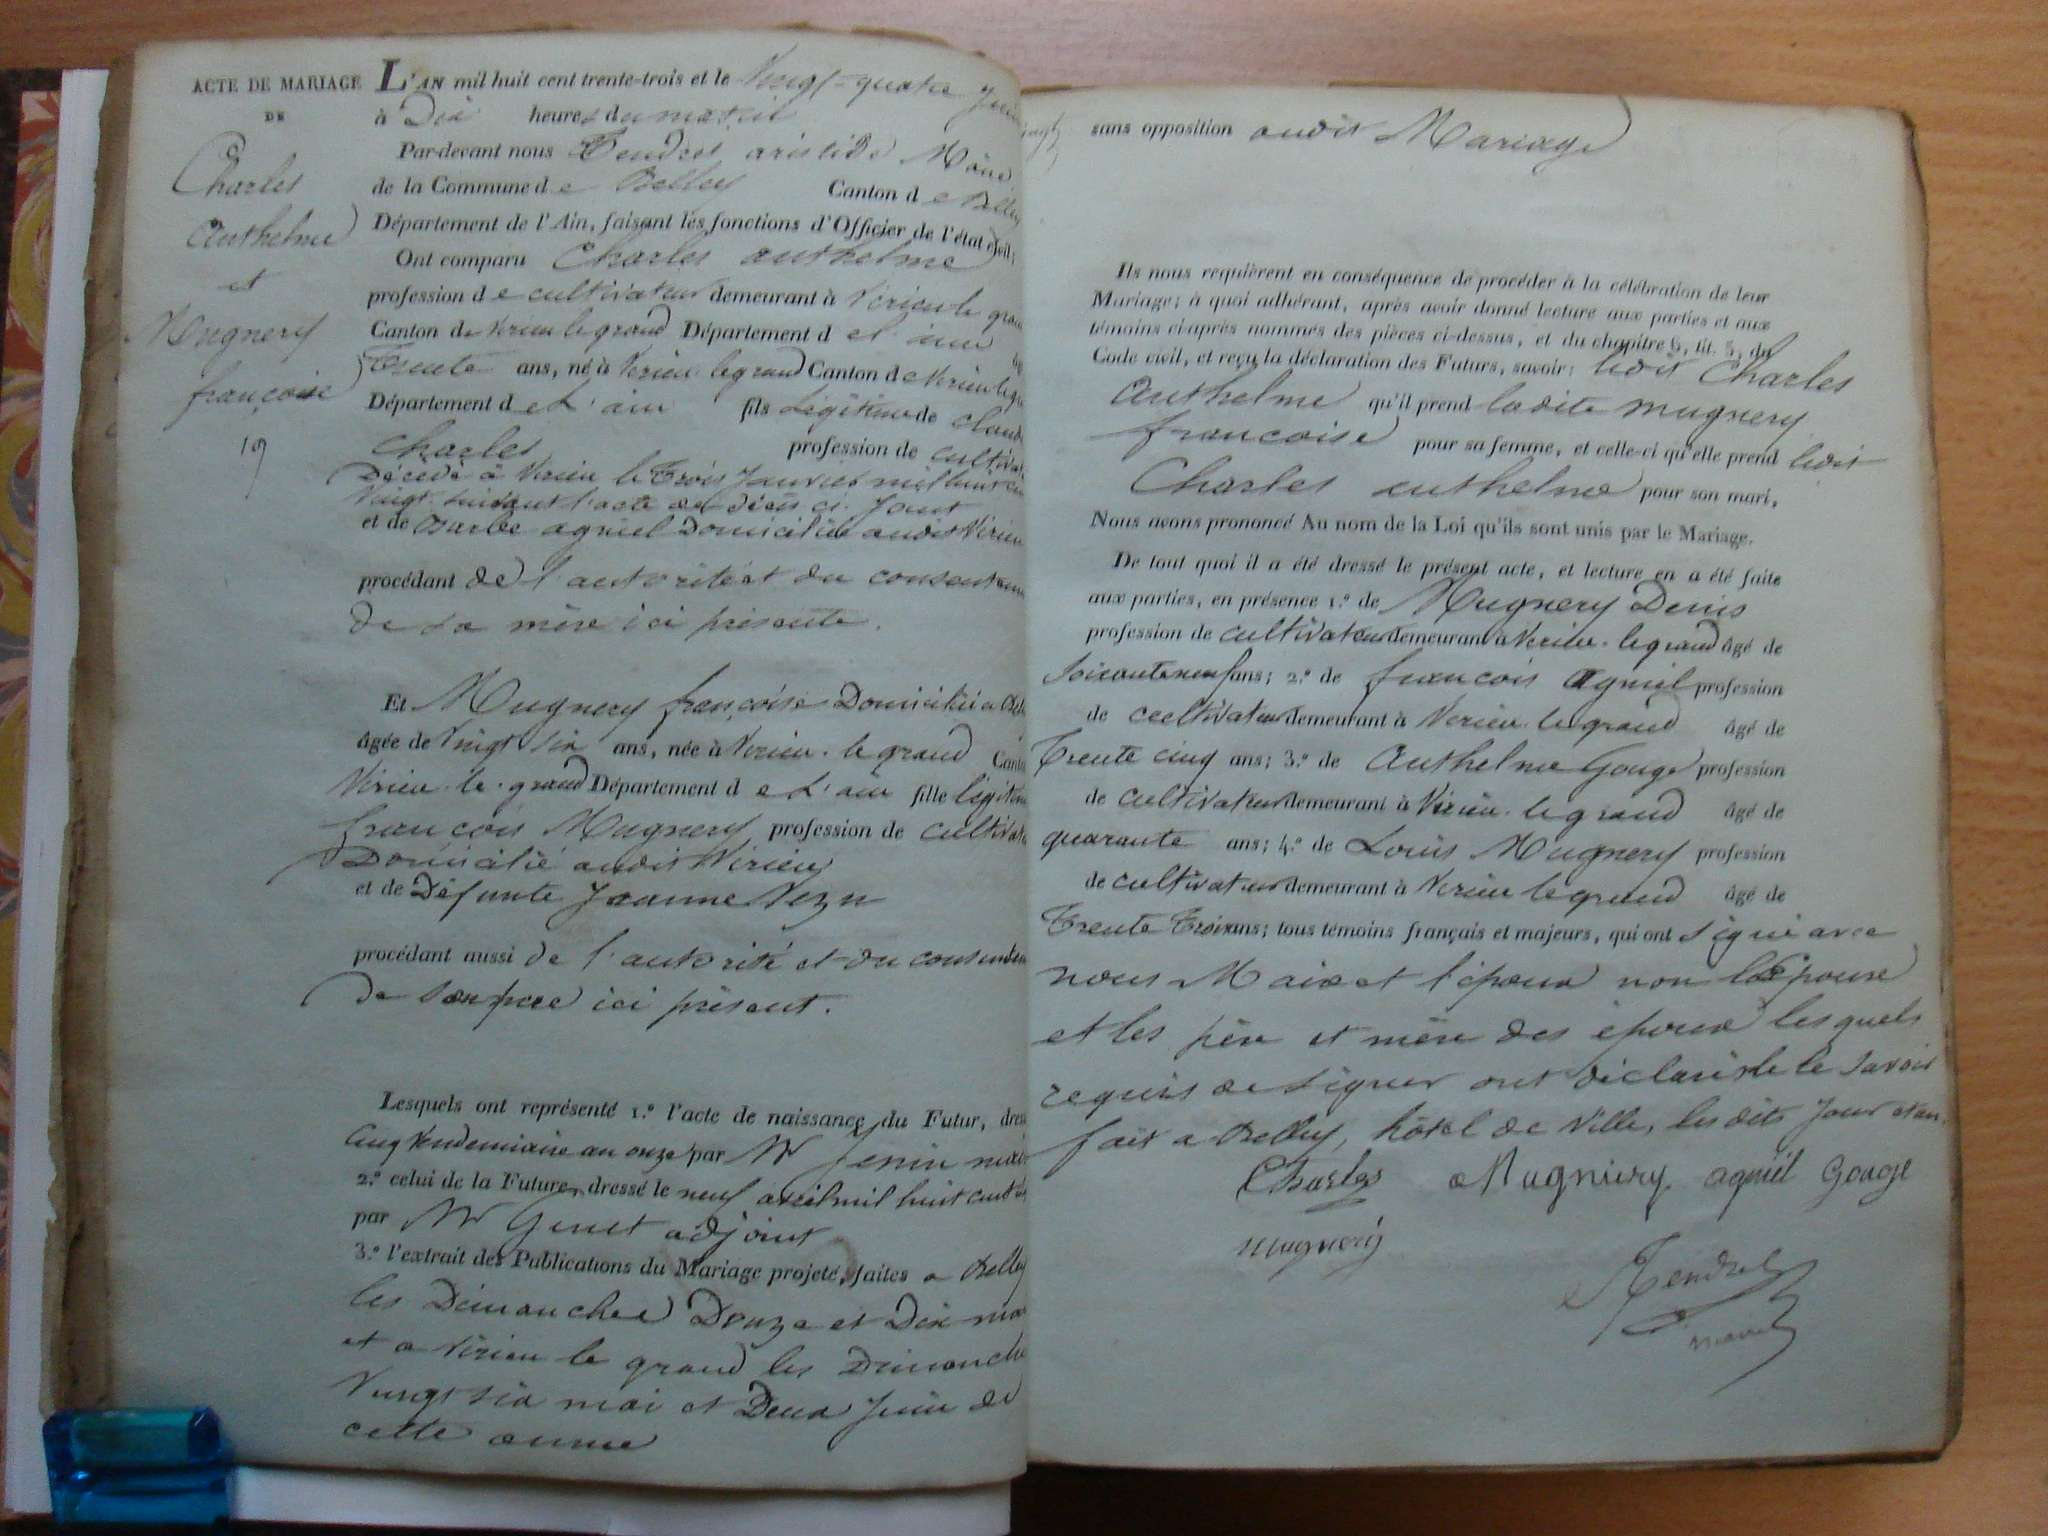 ACTE DE MARIAGE
DE
Charles
Anthelme
et
Mugnery
françoise
19
L'AN mil huit cent trente-trois et le Vingt-quatre Juin
à Dix heures du matin
Par-devant nous Tendret aristide Maire
de la Commune de Belley Canton de Belley
Département de l'Ain, faisant les fonctions d'Officier de l'état civil;
Ont comparu Charles anthelme
profession de cultivateur demeurant à Virieu le grand
Canton de Virieu le grand Département de l'ain
Trente ans, né à Virieu le grand Canton de Virieu le
Département de L'ain fils Légitime de claude
Charles profession de cultivat
Décédé à Virieu le Trois Janvier mil huit cent
Vingt suivant l'acte de décès ci Joint
et de Barbe agniel Domiciliée audit Virieu
procédant de l'autorité et du consentem
de sa mère ici présente.
Et Mugnery françoise Domiciliée à Belle
âgée de Vingt six ans, née à Virieu. le grand Canto
Virieu. le. grand Département de L'ain fille légitime
françois Mugnery profession de cultivate
Domicilié audit Virieu
et de Défunte Jeanne Vezu
procédant aussi de l'autorité et du consentem
de son père ici présent.
Lesquels ont représenté 1.º l'acte de naissance du Futur, dres
Cinq Vendemiaire an onze par Mr Jenin maire
2.º celui de la Future, dressé le neuf avril mil huit cent
par Mr Genet adjoint
3.º l'extrait des Publications du Mariage projeté, faites à Belley
les Dimanches Douze et Dix
et à Virieu le grand les Dimanche
Vingt six mai et Deux Juin de
cette année
sans opposition audit Mariage
Ils nous requièrent en conséquence de procéder à la célébration de leur
Mariage; à quoi adhérant, après avoir donné lecture aux parties et aux
témoins ci-après nommés des pièces ci-dessus, et du chapitre 6, tit. 5, du
Code civil, et reçu la déclaration des Futurs, savoir: ledit Charles
Anthelme qu'il prend ladite mugnery
francoise pour sa femme, et celle-ci qu'elle prend ledit
Charles anthelme pour son mari,
Nous avons prononcé Au nom de la Loi qu'ils sont unis par le Mariage.
De tout quoi il a été dressé le présent acte, et lecture en a été faite
aux parties, en présence 1.º de Mugnery Denis
profession de cultivateur demeurant à Virieu. le grand âgé de
Soixante neuf ans; 2.º de françois agniel profession
de cultivateur demeurant à Virieu. le grand âgé de
Trente cinq ans; 3.º de Anthelme Gouge profession
de cultivateur demeurant à Virieu. le grand âgé de
quarante ans; 4.º de Louis Mugnery profession
de cultivateur demeurant à Virieu le grand âgé de
Trente Trois ans; tous témoins français et majeurs, qui ont signé avec
nous Maire et l'époux non l'épouse
et les père et mère des époux lesquels
requis de signer ont déclaré ne le savoir
fait à Belley, hôtel de Ville, les dits Jour et an.
Charles Mugniery agniel Gouge
mugnery
Tendret
maire